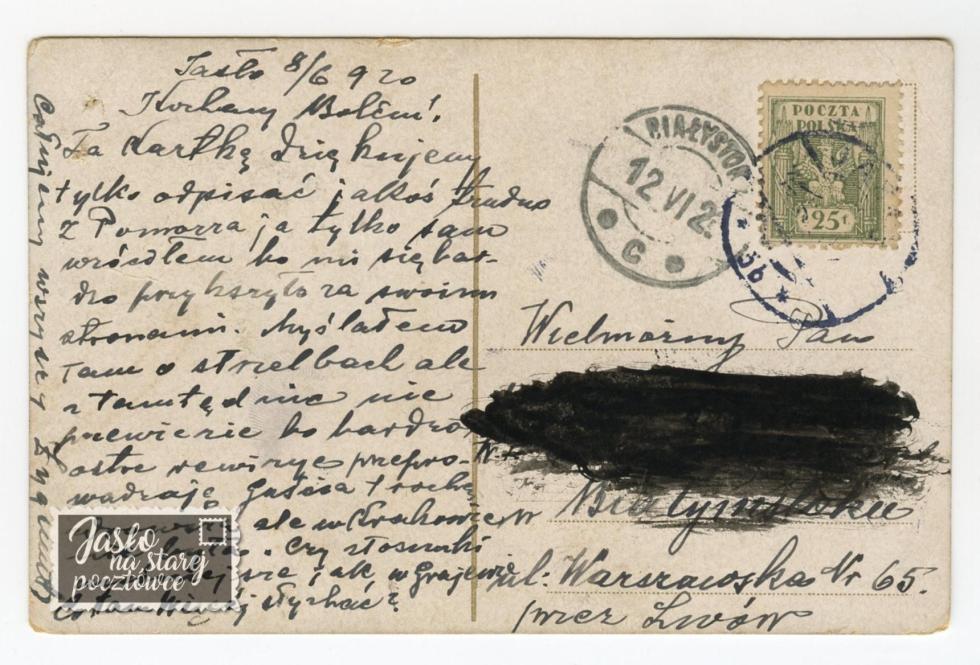 Jasło 8/6 920
Kochany Bolciu!
Za Kartkę dziękujemy
tylko odpisać jakoś trudno
z Pomorza ja tylko sam
wróciłem bo mi się bar-
dzo przykszyło za swoimi
stronami. Myślałem
Tam o strzelbach ale
z tamtąd nic nie
przewiezie bo bardzo
ostre rewizye przepro-
wadzają Gusica trochę
ale w Krakowie
. Czy stosunki
jak w Grajewie
słychać?
Całujemy wszyscy
POCZTA
POLSKA
25 f
BIAŁYSTOK
12 VI 2
C
Wielmożny Pan
w Białymstoku
ul. Warszawska Nr 65.
przez Lwów
Jasło
na starej
pocztówce